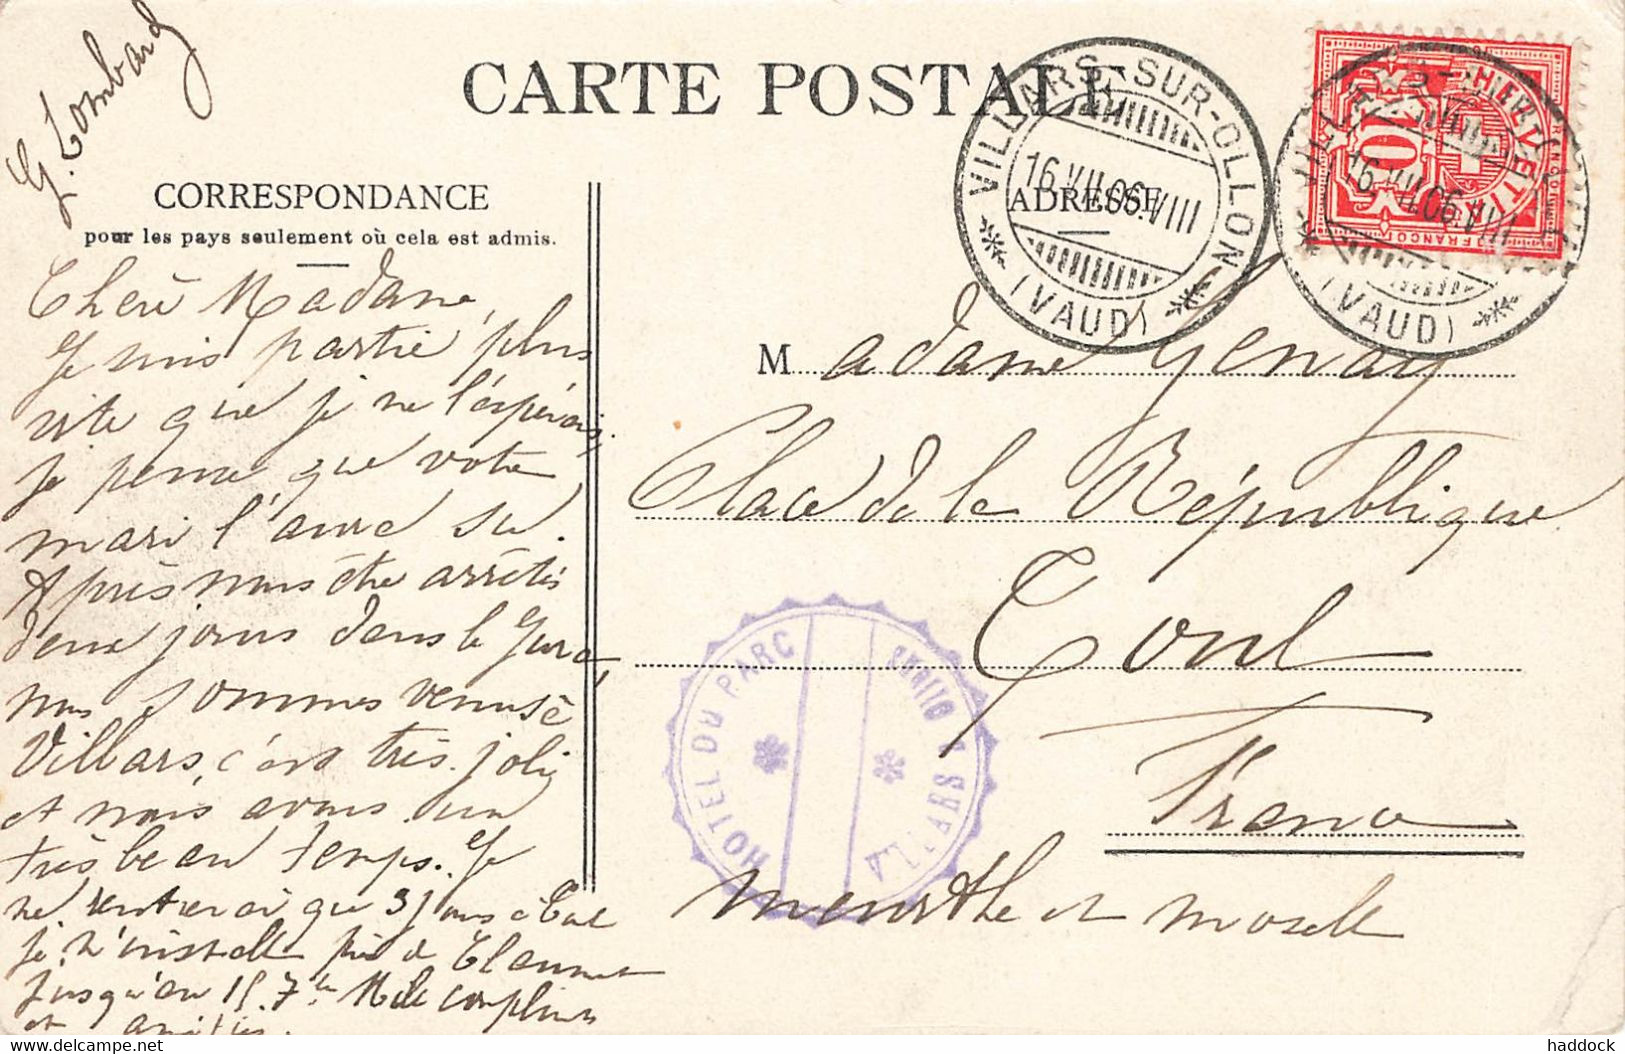 G. Lombard
CARTE POSTALE
CORRESPONDANCE
pour les pays seulement où cela est admis.
ADRESSE
VILLARS-SUR-OLLON
16.VII.06.VIII
(VAUD)
VILLARS-SUR-OLLON
16.VII.06.VIII
(VAUD)
HELVETIA
10
FRANCO
Chère Madame,
Je suis partie plus
vite que je ne l'espérais,
je pense que votre
mari l'aura su.
Après nous être arrêtés
deux jours dans le Jura,
nous sommes venus à
Villars, c'est très joli
et nous avons un
très beau temps. Je
ne rentrerai que 3 jours à Toul
je m'installe près de
jusqu'au 15 7bre Mille compliments
et amitiés.
Madame Genay
Place de la République
Toul
France
Meurthe et Moselle
HOTEL DU PARC
VILLARS S. OLLON
haddock